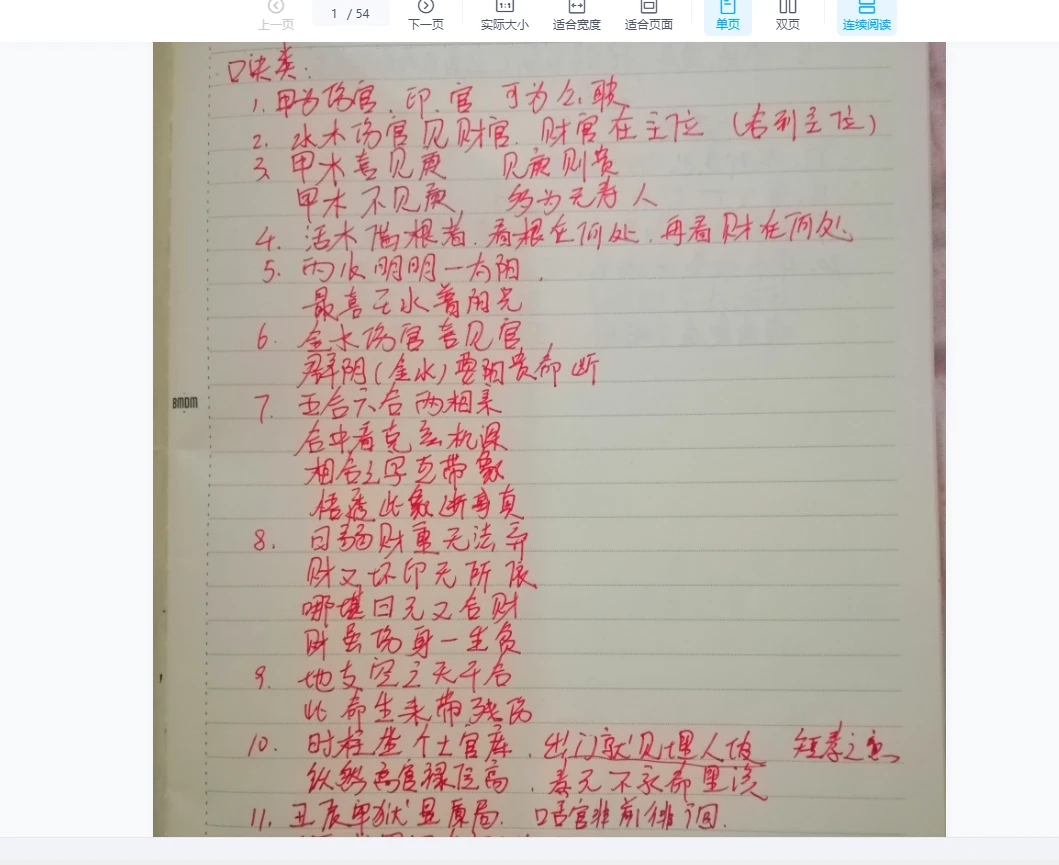 上一页 1 / 54 下一页 实际大小 适合宽度 适合页面 单页 双页 连续阅读
口诀类:
1. 甲为伤官. 印. 官 可为公.
2. 水木伤官见财官. 财官在主位 (右到主位)
3. 甲木喜见庚 见庚则贵
甲木不见庚 多为无寿人
4. 活木带根者. 看根在何处. 再看财在何处
5. 丙火明明一太阳.
最喜壬水著阳光
6. 金水伤官喜见官
群阴(金水)要阳贵命断
7. 五合六合两相亲
合中看克玄机深
相合之字克带象
悟透此象断事真
8. 日弱财重无法弃
财又坏印无所依
哪堪日元又合财
财虽伤身一生负
9. 地支空亡天干合
此命生来带残伤
10. 时柱坐个土官库. 出门就见埋人坡 短寿之意
纵然高官禄位高. 寿元不永命里该
11. 丑辰牢狱显原局. 官非前徘徊.
BMDM